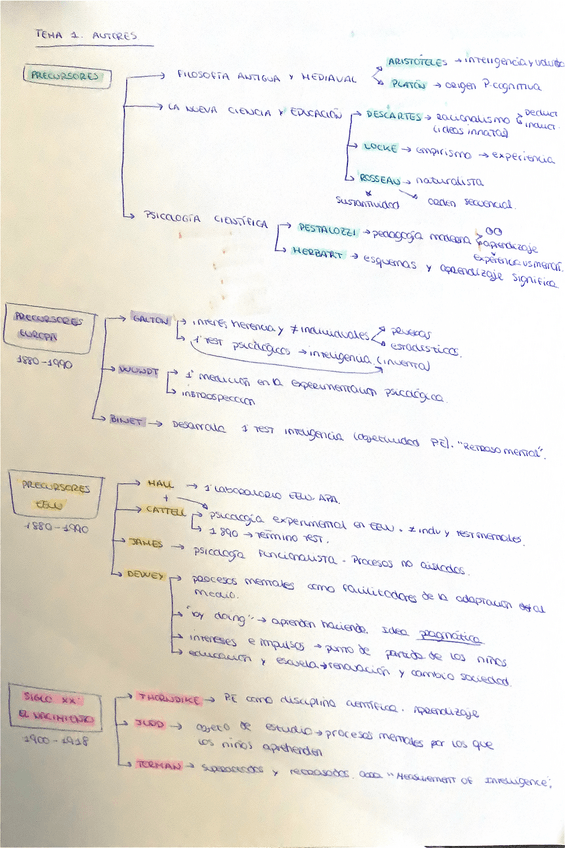 TEMA 1. AUTORES
PRECURSORES
FILOSOFÍA ANTIGUA Y MEDIAVAL
ARISTÓTELES → inteligencia y
PLATÓN → origen P. cognitiva
LA NUEVA CIENCIA Y EDUCACIÓN
DESCARTES → racionalismo deduct. induct.
(ideas innatas)
LOCKE → empirismo → experiencia
ROSSEAU → naturalista
sustantividad orden secuencial.
PSICOLOGÍA CIENTÍFICA
PESTALOZZI → pedagogía moderna aprendizaje
HERBART → esquemas y aprendizaje significa
PRECURSORES EUROPA
1880-1990
GALTON → interés herencia y ≠ individuales pruebas
estadísticas.
1º test psicológicos → inteligencia (inventa)
WUNDT → 1ª medición en la experimentación psicológica.
introspección
BINET → Desarrolla 1º TEST inteligencia (objetividad PE). "Retraso mental".
PRECURSORES EEUU
1880-1990
HALL → 1º laboratorio EEUU. APA.
+
CATTELL → psicología experimental en EEUU. ≠ indiv y test mentales.
1890 → término TEST.
JAMES → psicología funcionalista. Procesos no aislados.
DEWEY → procesos mentales como facilitadores de la adaptación al
medio.
"by doing" → aprenden haciendo. Idea pragmática
intereses e impulsos → punto de partida de los niños
educación y escuela → renovación y cambio sociedad.
SIGLO XX:
EL NACIMIENTO
1900-1918
THORNDIKE → PE como disciplina científica. Aprendizaje
JUDD → objeto de estudio → procesos mentales por los que
los niños aprehenden
TERMAN → superdotados y retrasados. "Measurement of Intelligence";